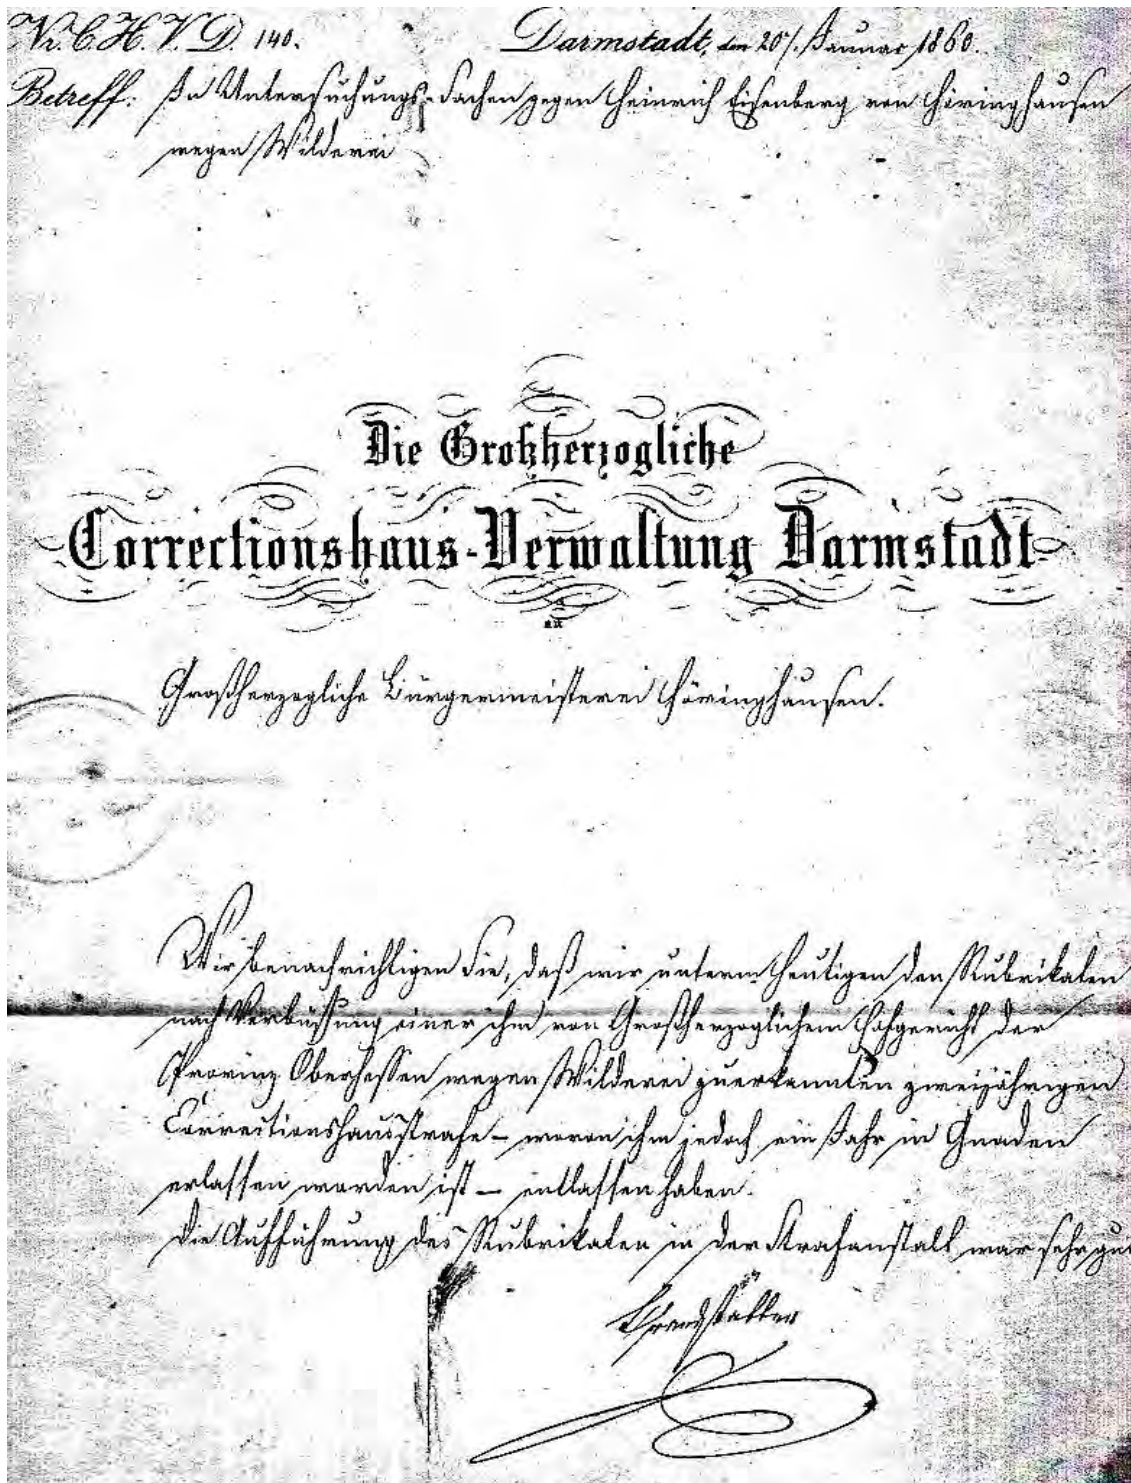 Nr. C. H. V. D. 140.
Darmstadt, den 20/. Januar 1860.
Betreff: In Untersuchungs-Sachen gegen Heinrich Eisenberg von Höringhausen
wegen Wilderei
Die Großherzogliche
Correctionshaus-Verwaltung Darmstadt
an
Großherzogliche Bürgermeisterei Höringhausen.
Wir benachrichtigen Sie, daß wir unterm Heutigen den Rubrikaten
nach Verbüßung einer ihm von Großherzoglichem Hofgericht der
Provinz Oberhessen wegen Wilderei zuerkannten zweijährigen
Correctionshausstrafe – wovon ihm jedoch ein Jahr in Gnaden
erlassen worden ist – entlassen haben.
Die Aufführung des Rubrikaten in der Strafanstalt war sehr gut